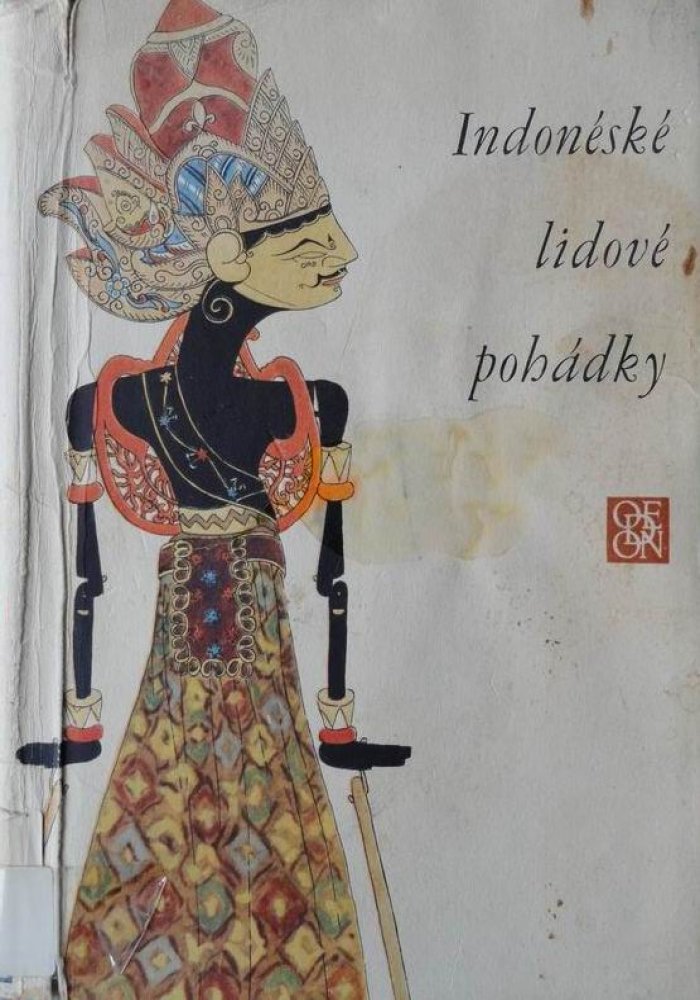 Indonéské
lidové
pohádky
ODEON